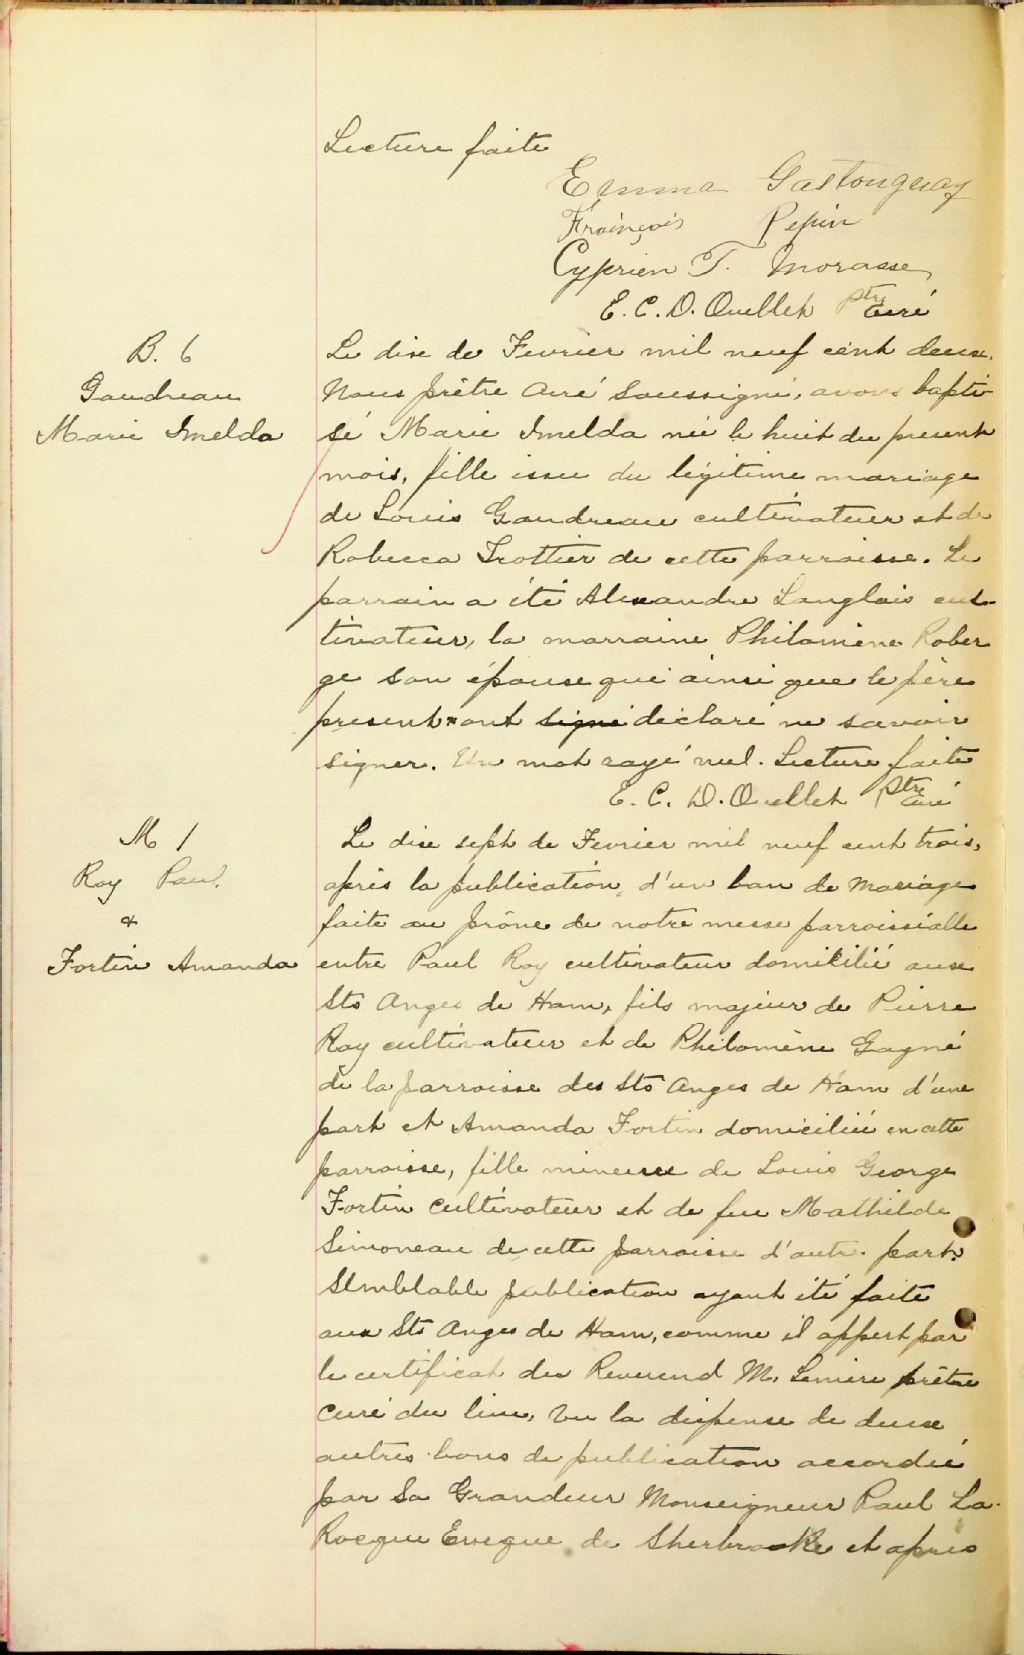 Lecture faite
Emma Gastonguay
François Pepin
Cyprien T. Morasse
E. C. D. Ouellet Ptre Curé
B. 6
Gaudreau
Marie Imelda
Le dixe de Fevrier mil neuf cent deux.
Nous prêtre curé Soussigné, avons bapti-
sé Marie Imelda née le huit du present
mois, fille issu du légitime mariage
de Louis Gaudreau cultivateur et de
Rebecca Trottier de cette parroisse. Le
parrain a été Alexandre Langlois cul-
tivateur, la marraine Philomène Rober
ge son épouse qui ainsi que le père
present ont signé déclaré ne savoir
signer. Un mot rayé nul. Lecture faite
E. C. D. Ouellet Ptre Curé
M 1
Roy Paul
&
Fortin Amanda
Le dixe sept de Fevrier mil neuf cent trois,
après la publication d'un ban de mariage
faite au prône de notre messe parroissialle
entre Paul Roy cultivateur domicilié aux
Sts Anges de Ham, fils majeur de Pierre
Roy cultivateur et de Philomène Gagné
de la parroisse des Sts Anges de Ham d'une
part et Amanda Fortin domiciliée en cette
parroisse, fille mineure de Louis George
Fortin cultivateur et de feu Mathilde
Simoneau de cette parroisse d'autre part.
Semblable publication ayant été faite
aux Sts Anges de Ham, comme il appert par
le certificat du Reverend M. Lemire prêtre
curé du lieu, Vu la dispense de deux
autres bans de publication accordée
par Sa Grandeur Monseigneur Paul La-
Rocque Eveque de Sherbrooke et après